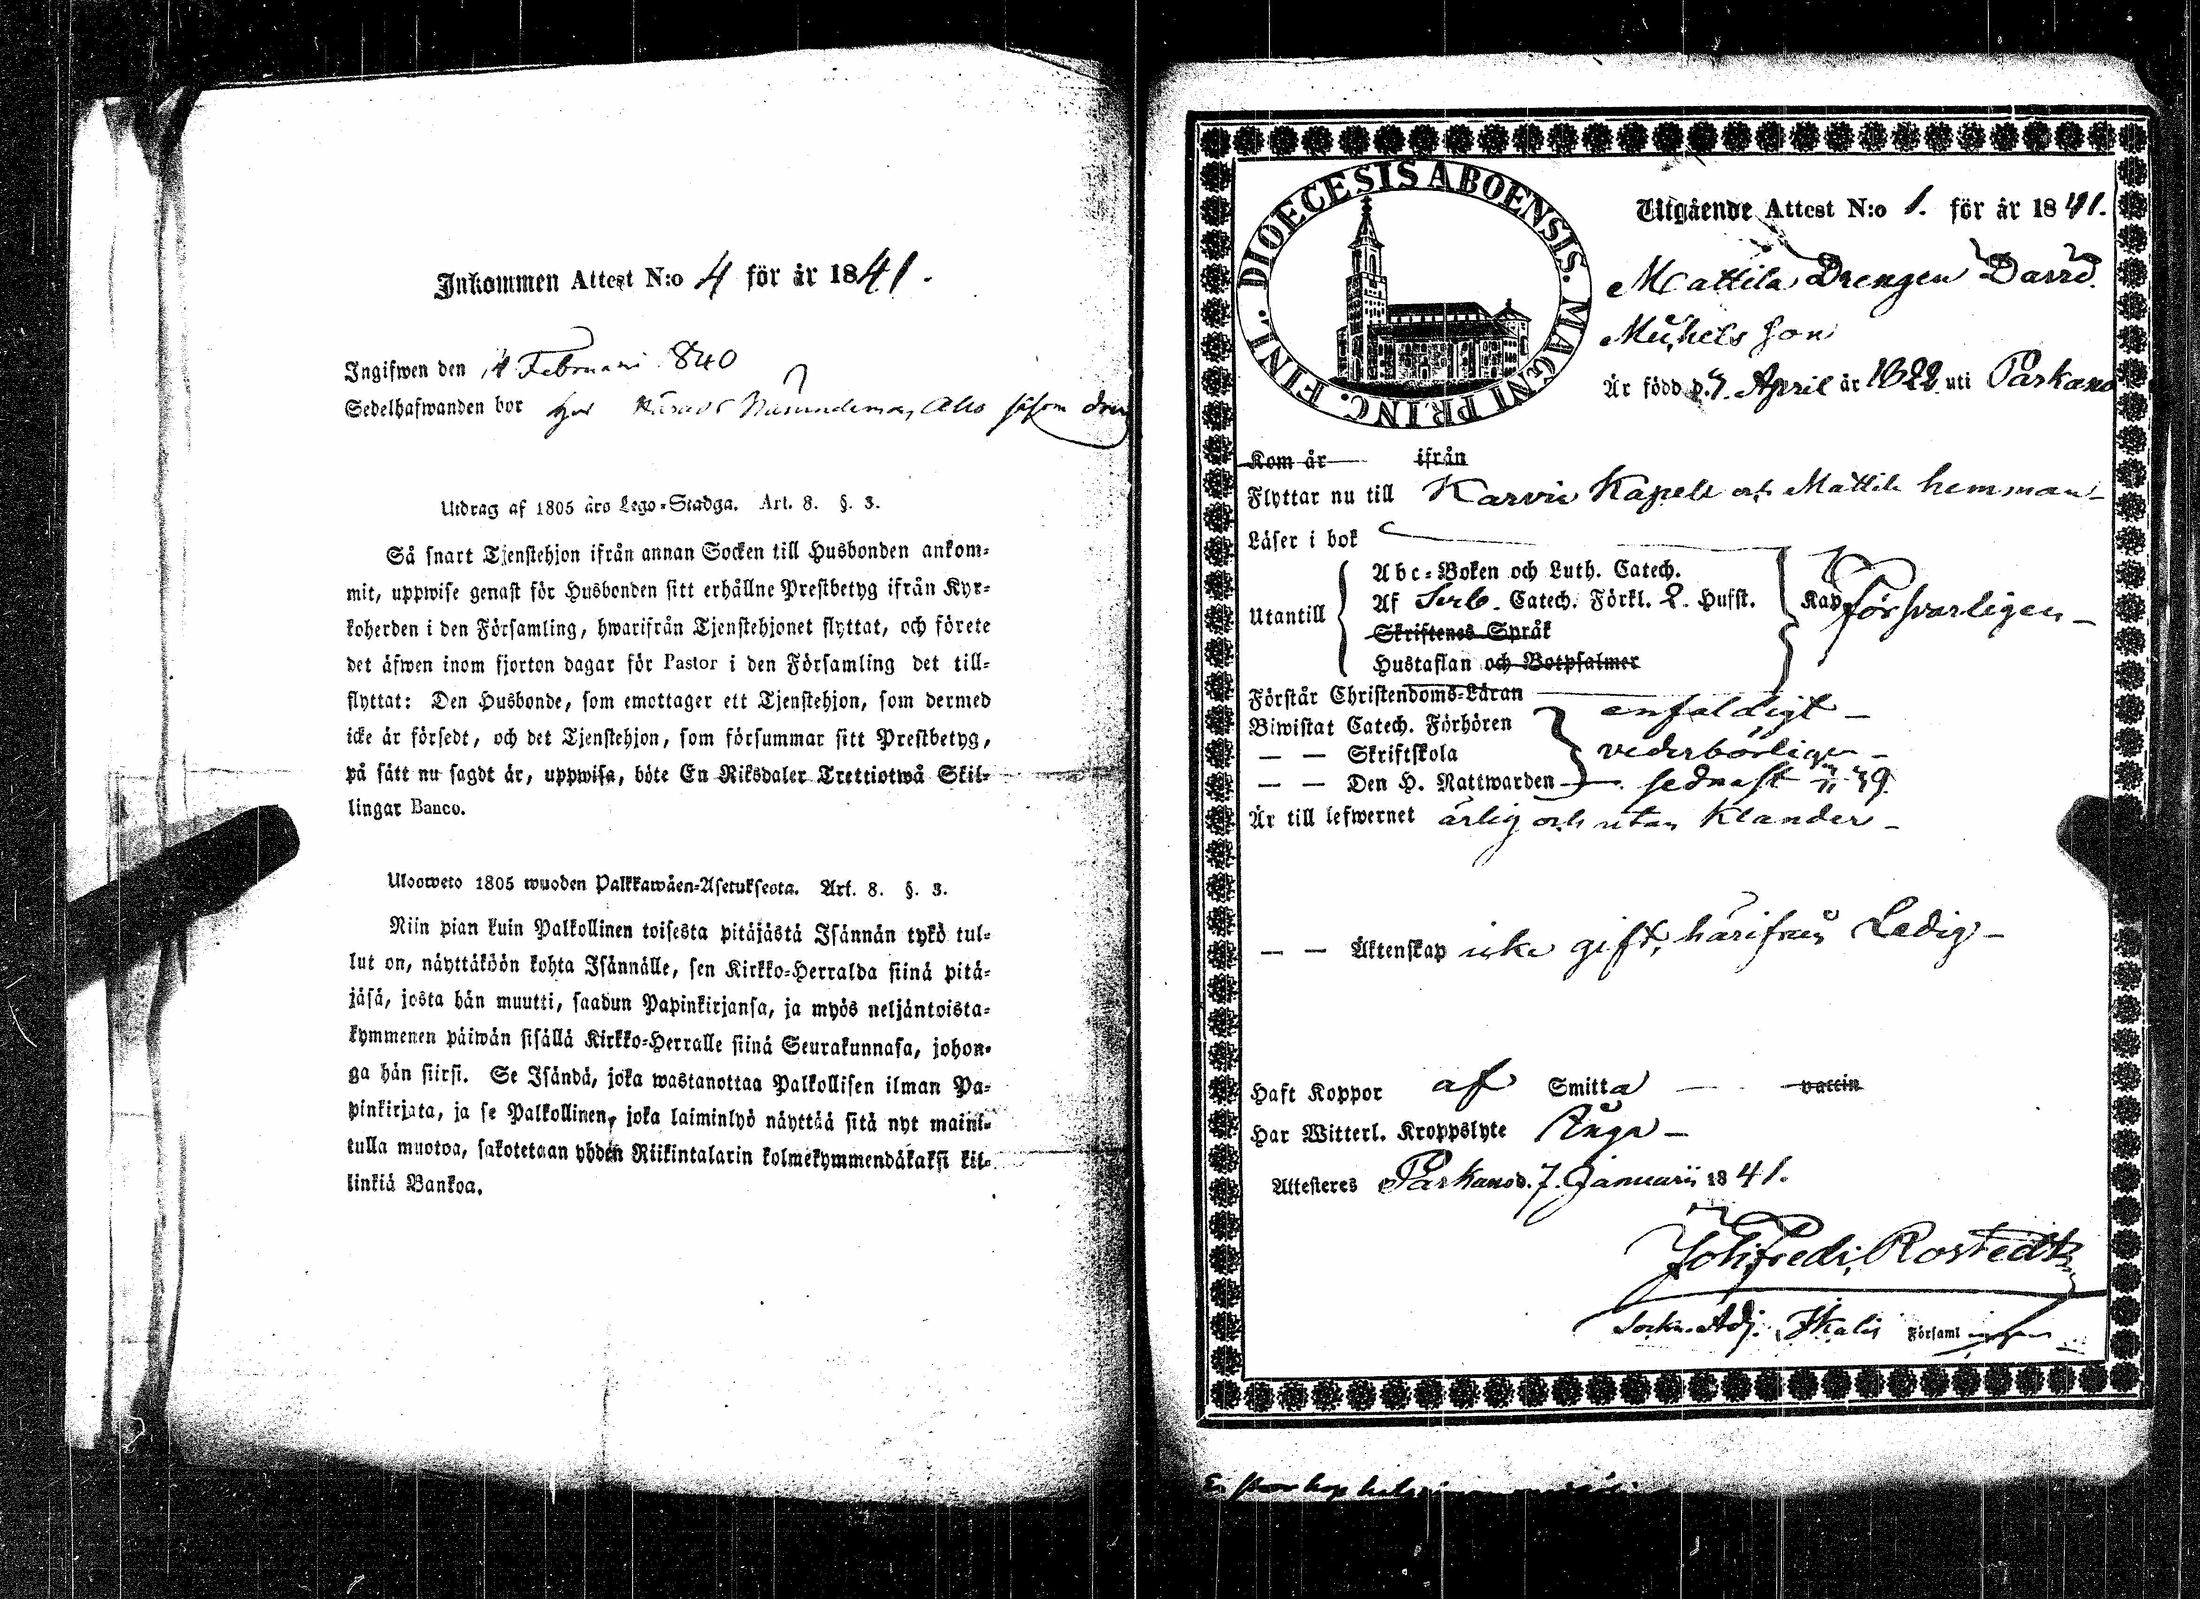 Inkommen Attest N:o 4 för år 1841.
Ingifwen den 14 Februari 840
Sedelhafwanden bor hos såsom dren
Utdrag af 1805 års Lego-Stadga. Art. 8. §. 3.
Så snart Tjenstehjon ifrån annan Socken till Husbonden ankom-
mit, uppwise genast för Husbonden sitt erhållne Prestbetyg ifrån Kyr-
koherden i den Församling, hwarifrån Tjenstehjonet flyttat, och förete
det äfwen inom fjorton dagar för Pastor i den Församling det till-
flyttat: Den Husbonde, som emottager ett Tjenstehjon, som dermed
icke är försedt, och det Tjenstehjon, som försummar sitt Prestbetyg,
på sätt nu sagdt är, uppwisa, böte En Riksdaler Trettiotwå Skil-
lingar Banco.
Ulosweto 1805 wuoden Palkkawäen-Asetuksesta. Art. 8. §. 3.
Niin pian kuin Palkollinen toisesta pitäjästä Isännän tykö tul-
lut on, näyttäköön kohta Isännälle, sen Kirkko-Herralda siinä pitä-
jäsä, josta hän muutti, saadun Papinkirjansa, ja myös neljäntoista-
kymmenen päiwän sisällä Kirkko-Herralle siinä Seurakunnasa, johon-
ga hän siirsi. Se Isändä, joka wastanottaa Palkollisen ilman Pa-
pinkirjata, ja se Palkollinen, joka laiminlyö näyttää sitä nyt maini-
tulla muotoa, sakotetaan yhden Riikintalarin kolmekymmendäkaksi kil-
linkiä Bankoa.
DIOECESIS ABOENSIS. MAGNI PRINC. FINL.
Utgående Attest N:o 1. för år 1841.
Mattila Drengen David
Michels son
Är född d. 7. April år 1822 uti Parkano
Kom år ifrån
Flyttar nu till Karvia Kapell och Mattila hemman
Läser i bok
Utantill
Abc-Boken och Luth. Catech.
Af Serb. Catech. Förkl. 2. Hufst.
Skriftenes Språk
Hustaflan och Botpsalmer
Kap försvarligen
Förstår Christendoms-Läran enfaldigt
Biwistat Catech. Förhören
— — Skriftskola vederbörligen
— — Den H. Nattwarden sednast
Är till lefwernet ärlig och utan klander
— — Äktenskap icke gift, härifrån Ledig
Haft Koppor af Smitta vattin
Har Witterl. Kroppslyte Inga
Attesteres Parkano d. 7. Januarii 1841.
Joh. Fredr. Rostedt
Sockn. Adj. i Ikalis Församl